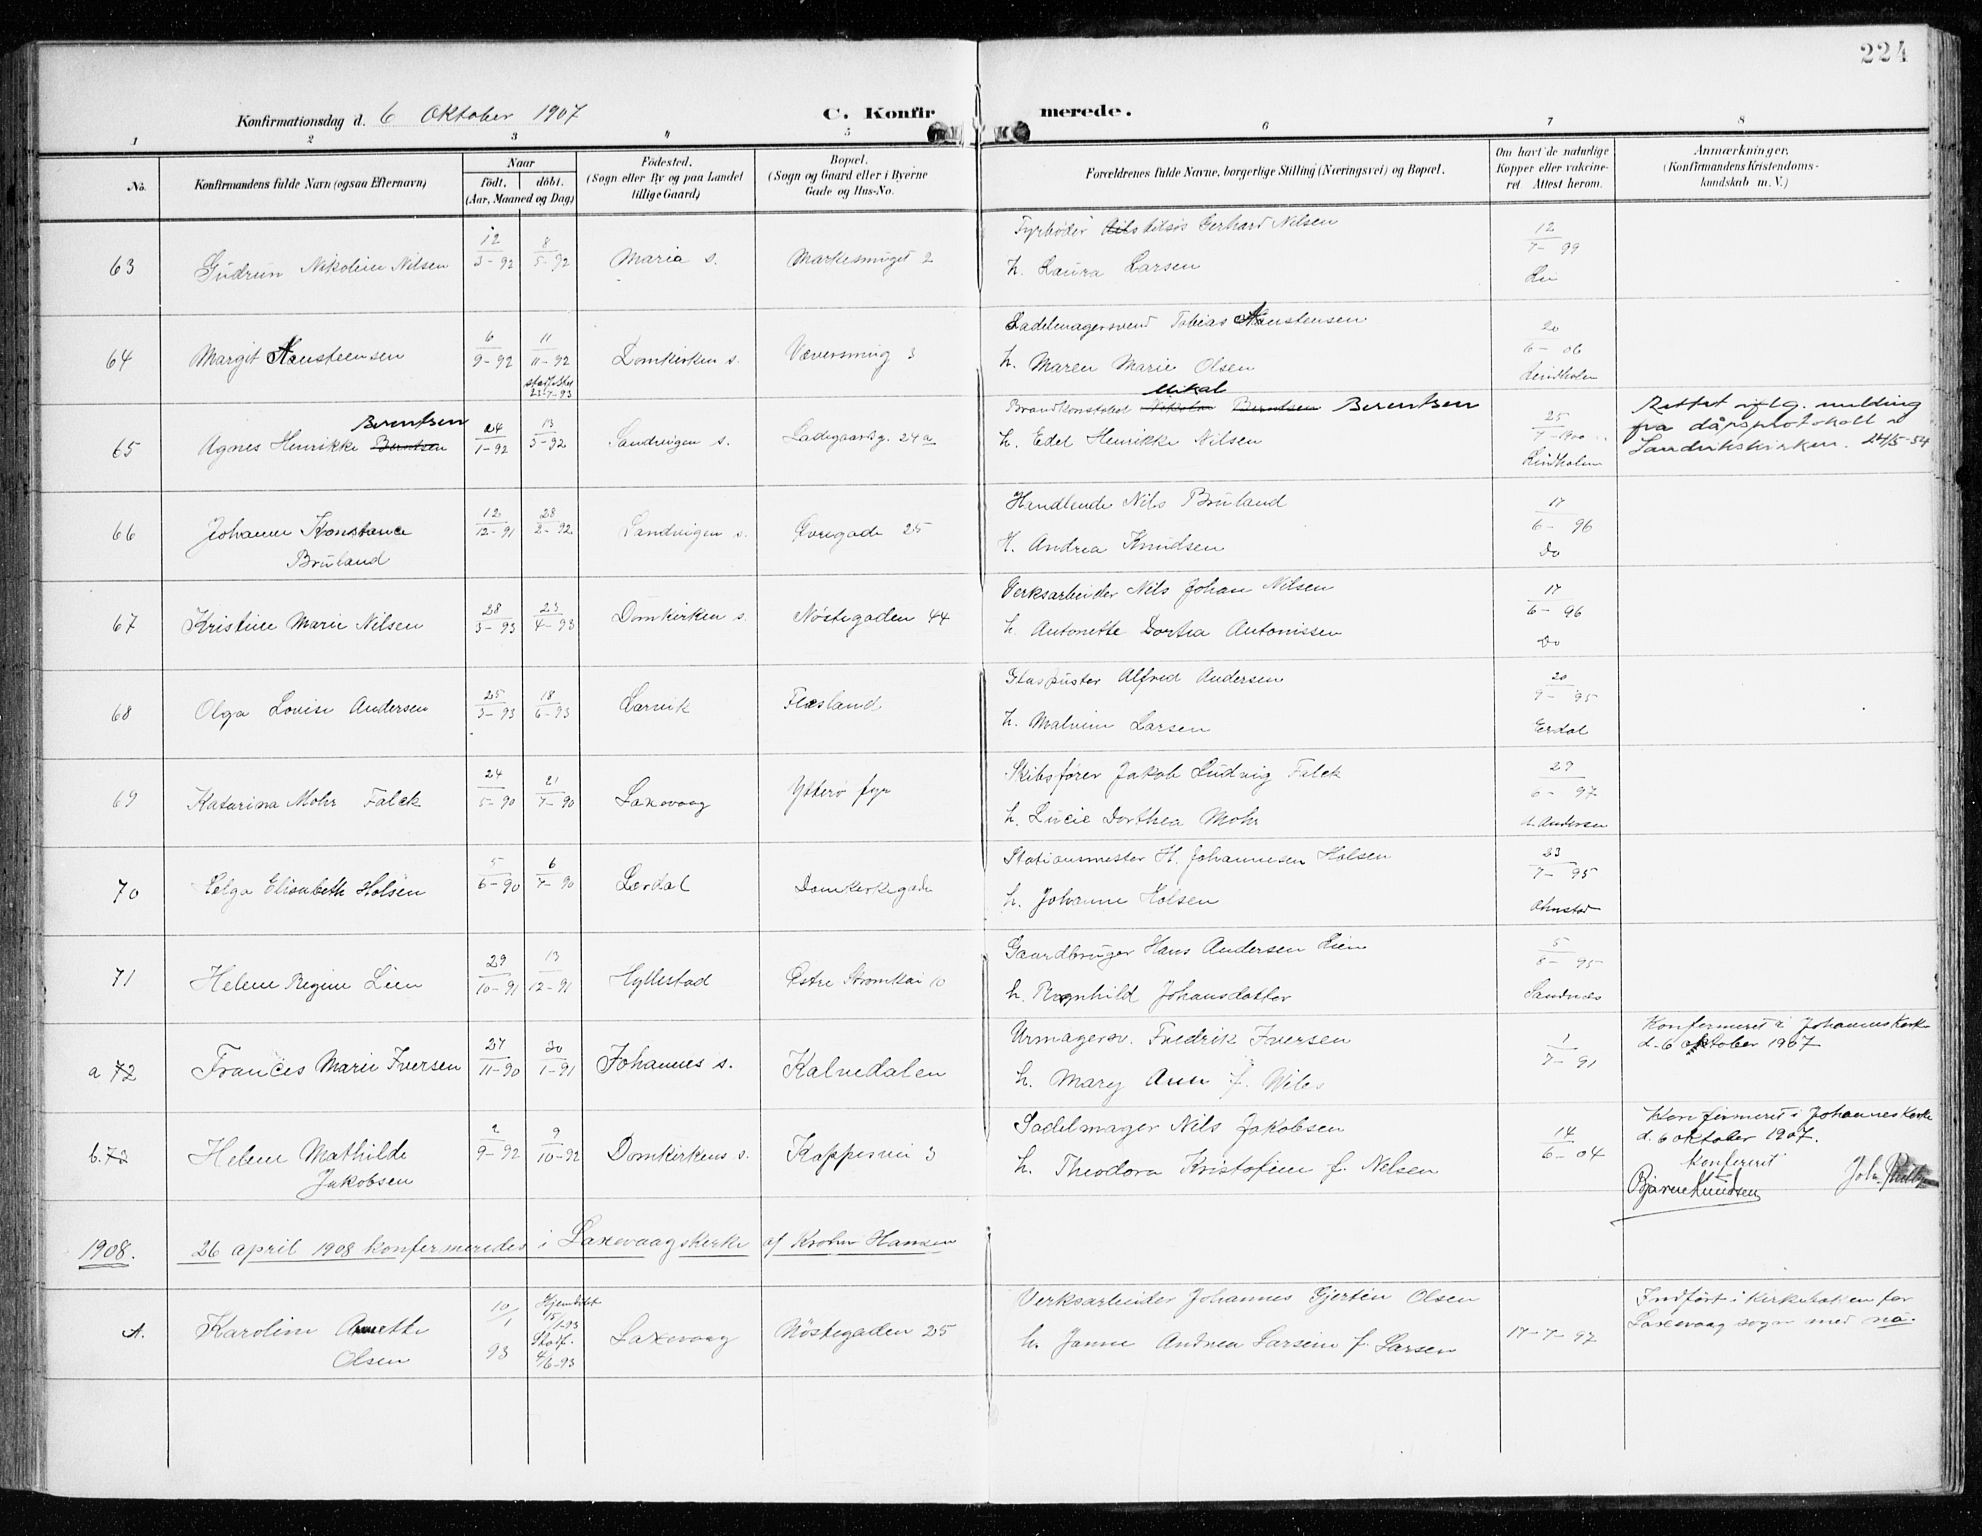 224
Konfirmationsdag d. 6 Oktober 1907
C. Konfirmerede.
1 2 3 4 5 6 7 8
No.
Konfirmandens fulde Navn (ogsaa Efternavn)
Naar
födt. döbt.
(Aar, Maaned og Dag)
Födested.
(Sogn eller By og paa Landet
tillige Gaard)
Bopæl.
(Sogn og Gaard eller i Byerne
Gade og Hus-No.
Forældrenes fulde Navne, borgerlige Stilling (Næringsvei) og Bopæl.
Om havt de naturlige
Kopper eller vakcine-
ret. Attest herom.
Anmærkninger,
(Konfirmandens Kristendoms-
kundskab m. V.)
63 Gudrun Nikoline Nilsen 12/3-92 8/5-92 Maria s. Markesmuget 2
Fyrböder Nilsös Gerhard Nilsen
h. Laura Larsen
12/7-99 Lie
64 Margit Aansteensen 6/9-92 11/11-92 Domkirken s. Væversmug 3
Sadelmagersvend Tobias Aanstensen
h. Maren Marie Olsen
20/6-06 Lindholm
65 Agnes Henrikke Berntsen Berentsen 24/1-92 13/3-92 Sandvigen s. Ladegaardsg. 24a
Brandkonstabel Nikolai Mikal Berntsen Berentsen
h. Edel Henrikke Nilsen
25/7-900 Lindholm
Rettet iflg. melding
fra dåpsprotokoll i
Sandvikskirken. 24/5-54
66 Johanne Konstance
Bruland
12/12-91 28/2-92 Sandvigen s. Øvregade 25
Handlende Nils Bruland
h. Andrea Knudsen
17/6-96 Do
67 Kristine Marie Nilsen 28/3-93 23/4-93 Domkirken s. Nöstegaden 44
Verksarbeider Nils Johan Nilsen
h. Antonette Dortea Antonissen
17/6-96 Do
68 Olga Lovise Andersen 25/3-93 18/6-93 Larvik Flesland
Glaspuster Alfred Andersen
h. Malvine Larsen
20/9-95 Erdal
69 Katarina Mohr Falck 24/5-90 21/7-90 Laxevaag Ytterö fyr
Skibsförer Jakob Ludvig Falck
h. Lucie Dorthea Mohr
29/6-97 Andersen
70 Helga Elisabeth Holsen 5/6-90 6/7-90 Lærdal Domkirkegade
Stationsmester H. Johannesen Holsen
h. Johanne Holsen
23/7-95 Ohnstad
71 Helene Regine Lien 29/10-91 13/12-91 Hyllestad Østre Strömkai 10
Gaardbruger Hans Andersen Lien
h. Ragnhild Johansdatter
5/8-95 Sandnes
a 72 Frances Marie Iversen 27/11-90 30/1-91 Johannes s. Kalvedalen
Urmagersv. Fredrik Iversen
h. Mary Ann f.
1/7-91
Konfirmeret i Johanneskirke
d. 6 oktober 1907
b. 72 Helene Mathilde
Jakobsen
2/9-92 9/10-92 Domkirkens s. Kappesvei 3
Sadelmager Nils Jakobsen
h. Theodora Kristofine f. Nelsen
14/6-04
Konfirmeret i Johanneskirke
d. 6 oktober 1907.
Konfereret
Bjarne Knudsen
1908. 26 april 1908 konfirmeredes i Laxevaagskirke af Krohn Hansen
A. Karoline Anette
Olsen
10/1 93
Hjemdöbt
15/1-93
Stadf.
4/6-93
Laxevaag Nöstegaden 25
Verksarbeider Johannes Gjertin Olsen
h. Janne Andrea Larsine f. Larsen
17-7-97
Indfört i kirkeboken for
Laxevaag sogn med no.